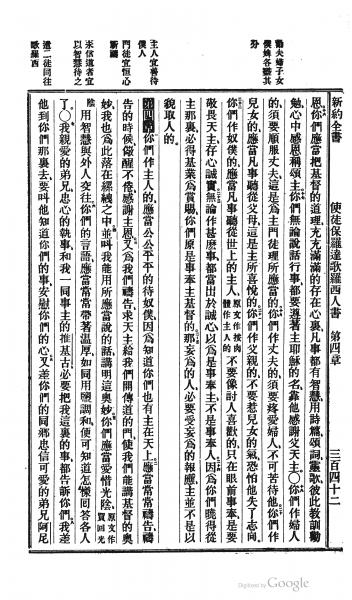 新約全書　使徒保羅達歌羅西人書　第四章　三百四十二
勸夫婦子女
僕各盡其
分
恩你們應當把基督的道理充充滿滿的存在心裏凡事都有智慧用詩篇頌詞靈歌彼此教訓勸
勉心中感恩稱頌主你們無論說話行事都要遵著主耶穌的名靠他感謝父天主○你們作婦人
的須要順服丈夫這是為主門徒理所應當的你們作丈夫的須要疼愛婦人不可苦待他你們作
兒女的應當凡事聽從父母這是主所喜悅的你們作父親的不要惹兒女的氣恐怕他失了志向
你們作奴僕的應當凡事聽從世上的主人原文作按肉體作主人的不要像討人喜歡的只在眼前事奉是要
敬畏天主存心誠實無論作甚麼事都當出於誠心以為是事奉主不是事奉人因為你們曉得從
主那裏必得基業為賞賜你們原是事奉主基督的那妄為的人必要受妄為的報應主並不是以
貌取人的
主人宜善待
僕人
門徒宜恒心
祈禱
第四章你們作主人的應當公公平平的待奴僕因為知道你們也有主在天上應當常常禱告禱
告的時候儆醒不倦感謝主恩又為我們禱告求天主給我們開傳道的門使我們能講基督的奧
妙我也為此落在縲絏之中並叫我能用所應當說的話講明這奧妙你們應當愛惜光陰原文作買回光
陰用智慧與外人交往你們的言語應當常常帶著溫厚如同用鹽調和便可知道怎樣回答各人
未信道者宜
以智慧待之
了○我親愛的弟兄忠心的執事和我一同事主的推基古必要把我這裏的事都告訴你們我差
他到你們那裏去要叫他知道你們的事安慰你們的心又差你們的同鄉忠信可愛的弟兄阿尼
遣二徒同往
歌羅西
Digitized by Google